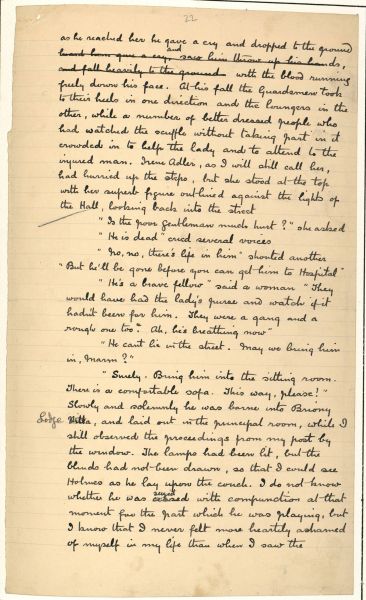 22
as he reached her he gave a cry and dropped to the ground
heard him give a cry, and saw him throw up his hands,
and fall heavily to the ground with the blood running
freely down his face. At his fall the Guardsmen took
to their heels in one direction and the loungers in the
other, while a number of better dressed people who
had watched the scuffle without taking part in it
crowded in to help the lady and to attend to the
injured man. Irene Adler, as I will still call her,
had hurried up the steps, but she stood at the top
with her superb figure outlined against the lights of
the Hall, looking back into the street
"Is the poor gentleman much hurt?" she asked
"He is dead" cried several voices
"No, no, there's life in him" shouted another
"But he'll be gone before you can get him to Hospital"
"He's a brave fellow" said a woman "They
would have had the lady's purse and watch if it
hadn't been for him. They were a gang and a
rough one too". Ah, he's breathing now"
"He cant lie in the street. May we bring him
in, Marm?"
"Surely. Bring him into the sitting room.
There is a comfortable sofa. This way, please!"
Slowly and solemnly he was borne into Briony
Lodge Villa, and laid out in the principal room, while I
still observed the proceedings from my post by
the window. The lamps had been lit, but the
blinds had not been drawn, so that I could see
Holmes as he lay upon the couch. I do not know
whether he was seized with compunction at that
moment for the part which he was playing, but
I know that I never felt more heartily ashamed
of myself in my life than when I saw the